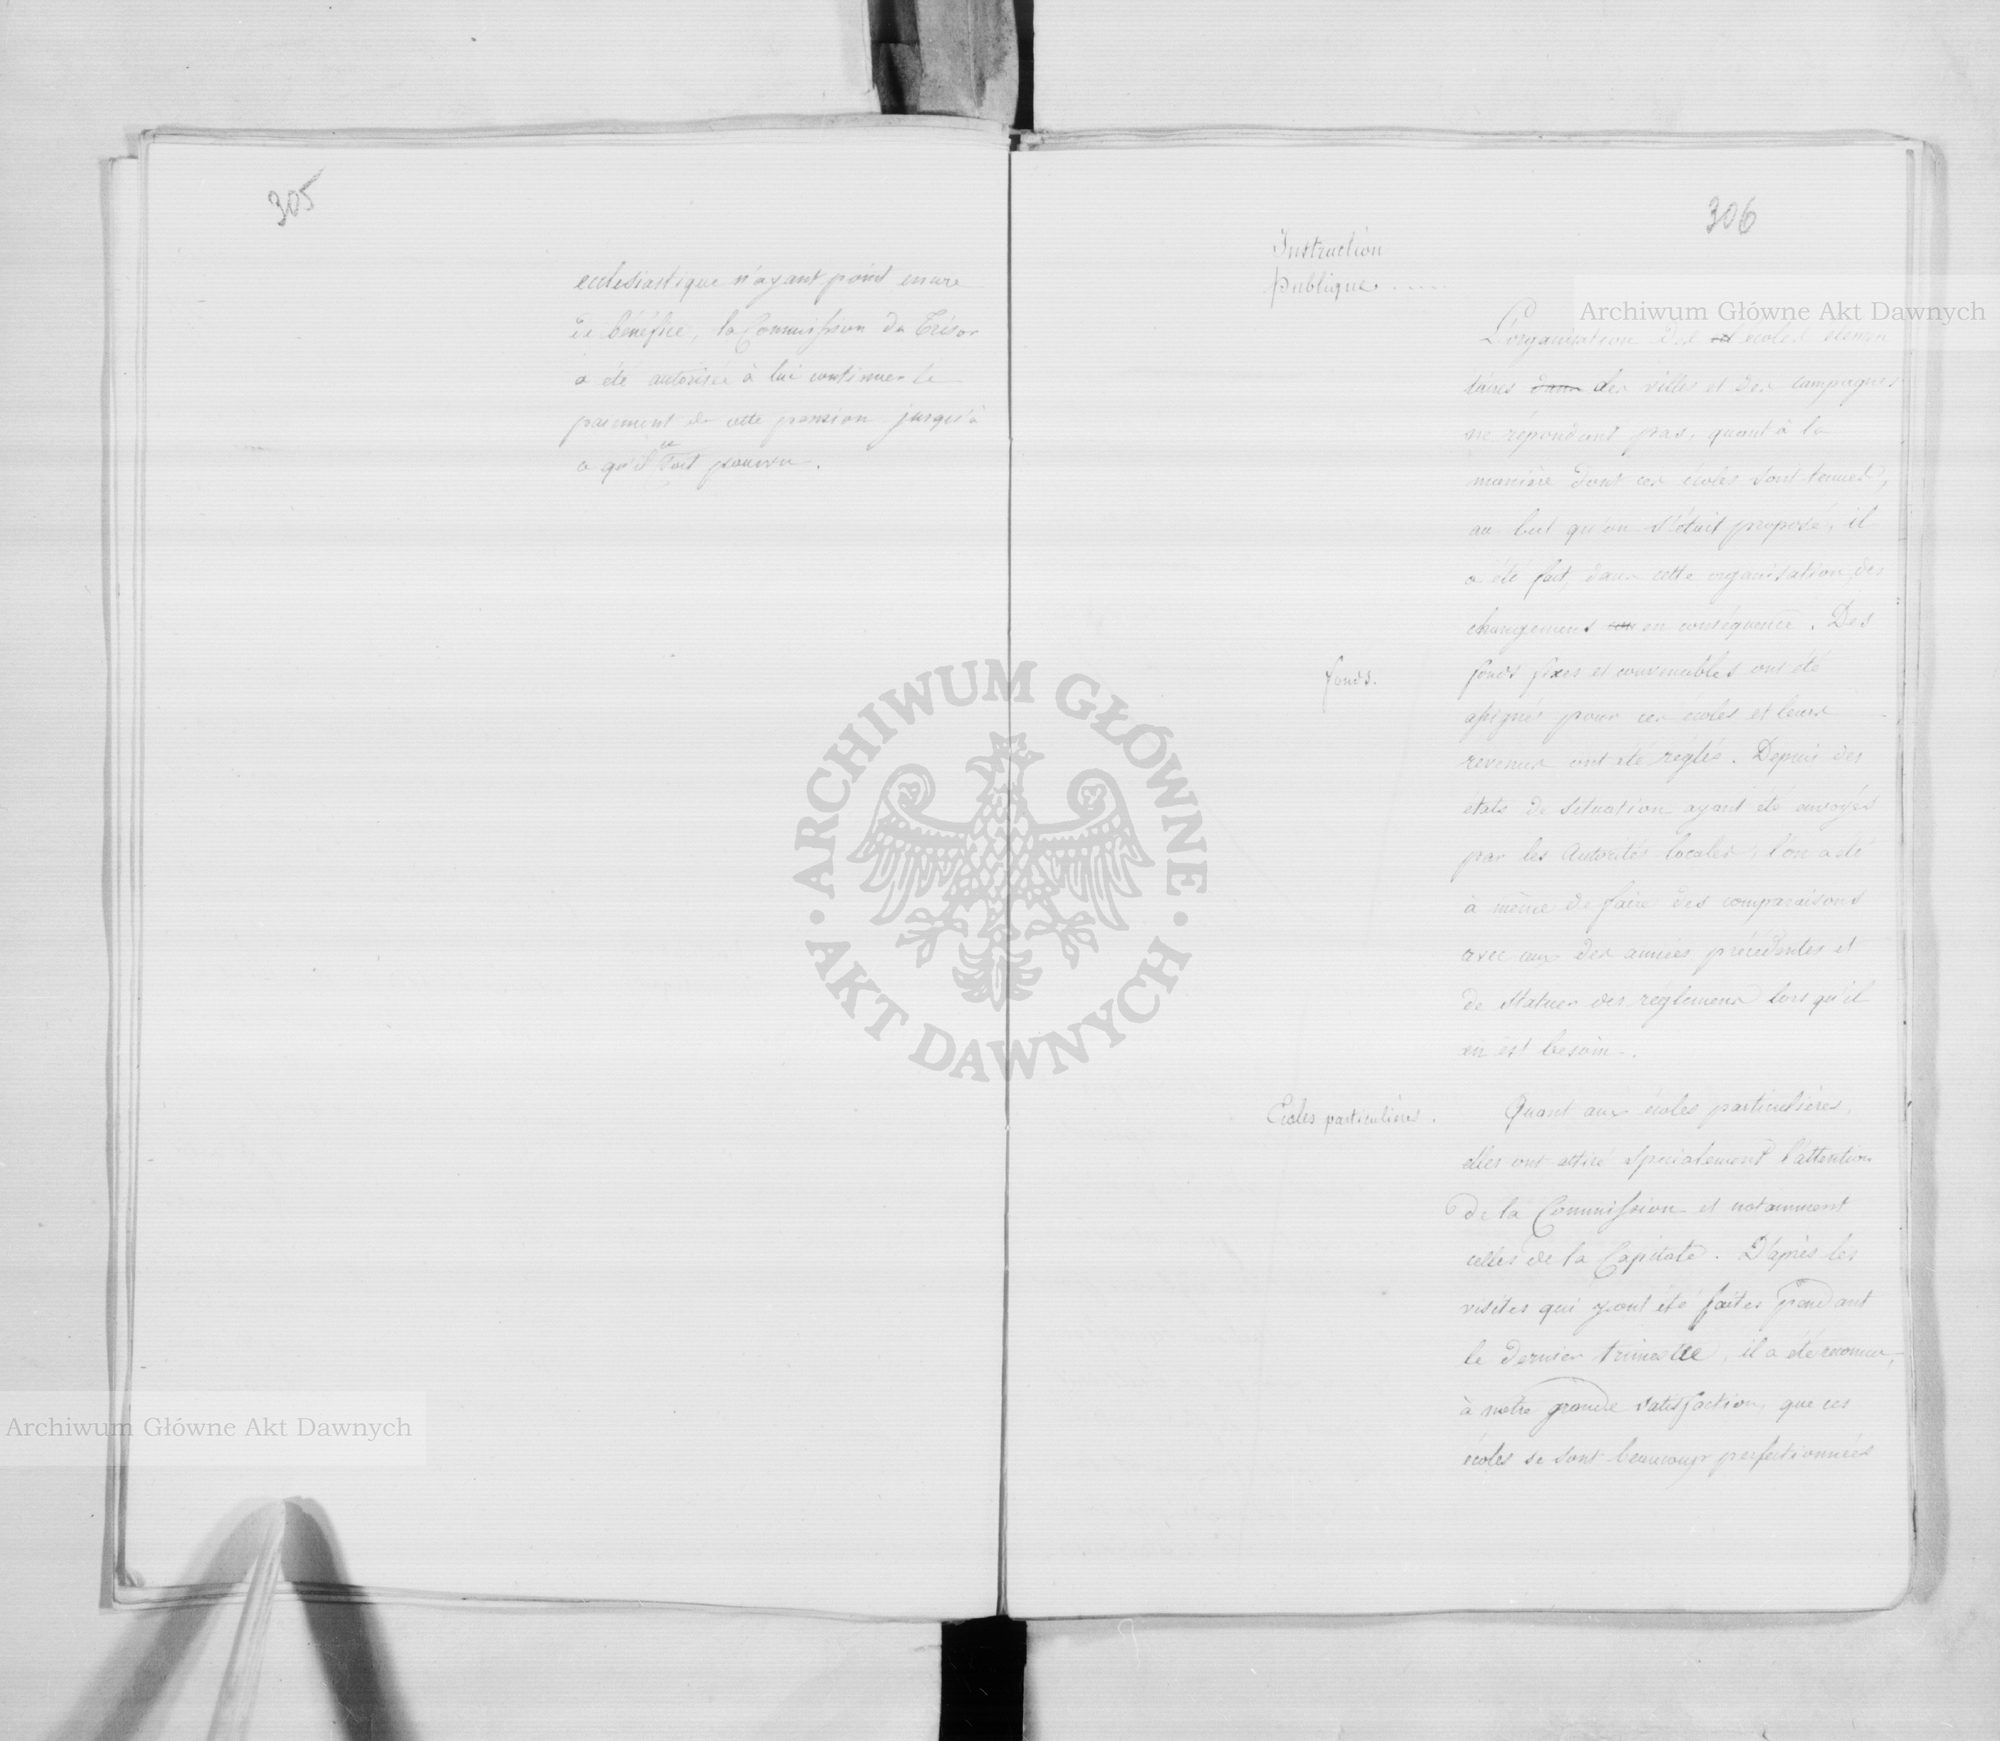 305
ecclesiastique n'ayant point encore
de bénéfice, la Commission du Trésor
a été autorisée à lui continuer le
paiement de cette pension jusqu'à
ce qu'il soit pourvu.
306
Instruction
publique.....
L'organisation des écoles élémen
taires dans des villes et des campagnes
ne répondant pas, quant à la
manière dont ces écoles sont tenues,
au but qu'on s'était proposé, il
a été fait, dans cette organisation, des
changemens en conséquence. Des
fonds.
fonds fixes et convenables ont été
assignés pour ces écoles et leurs
revenus ont été réglés. Depuis des
états de situation ayant été envoyés
par les Autorités locales, l'on a été
à même de faire des comparaisons
avec ceux des années précédentes et
de statuer des réglemens lorsqu'il
en est besoin.
Ecoles particulières.
Quant aux écoles particulières,
elles ont attiré spécialement l'attention
de la Commission et notamment
celles de la Capitale. D'après les
visites qui y ont été faites pendant
le dernier trimestre, il a été reconnu,
à notre grande satisfaction, que ces
écoles se sont beaucoup perfectionnées
Archiwum Główne Akt Dawnych
ARCHIWUM GŁÓWNE
AKT DAWNYCH
Archiwum Główne Akt Dawnych